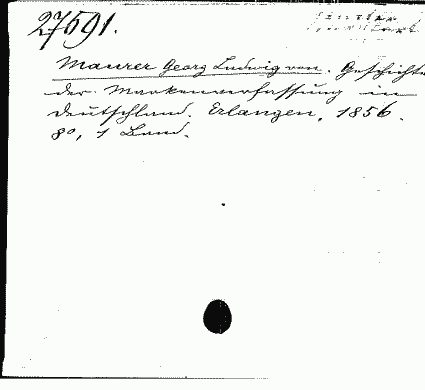 27591.
Maurer Georg Ludwig von. Geschichte
der Markenverfassung in
Deutschland. Erlangen, 1856.
8°, 1 Band.